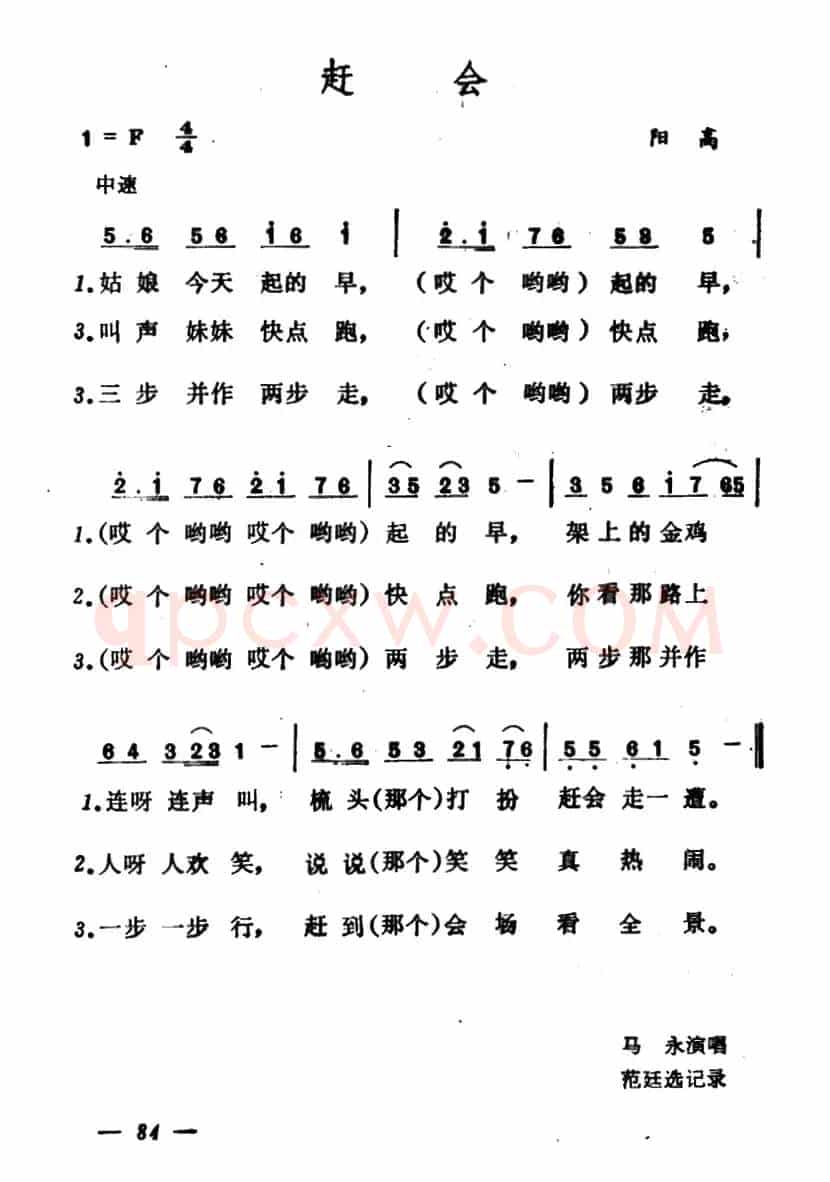 赶 会
1 = F 4/4 阳 高
中速
5. 6 5 6 i 6 i | 2̇. i 7 6 5 3 5 |
1.姑 娘 今天 起的 早, (哎 个 哟哟) 起的 早,
3.叫 声 妹妹 快点 跑, (哎 个 哟哟) 快点 跑,
3.三 步 并作 两步 走, (哎 个 哟哟) 两步 走,
2̇. i 7 6 2̇ i 7 6 | 3 5 2 3 5 - | 3 5 6 i 7 6 5 |
1.(哎 个 哟哟 哎个 哟哟) 起 的 早, 架上的金鸡
2.(哎 个 哟哟 哎个 哟哟) 快 点 跑, 你看那路上
3.(哎 个 哟哟 哎个 哟哟) 两 步 走, 两步那并作
6 4 3 2 3 1 - | 5. 6 5 3 2 1 7̣ 6̣ | 5̣ 5̣ 6̣ 1 5̣ - ‖
1.连呀 连声 叫, 梳头(那个)打 扮 赶会 走一 遭。
2.人呀 人欢 笑, 说说(那个)笑 笑 真 热 闹。
3.一步 一步 行, 赶到(那个)会 场 看 全 景。
马 永演唱
范廷选记录
— 84 —
qpcxw.COM